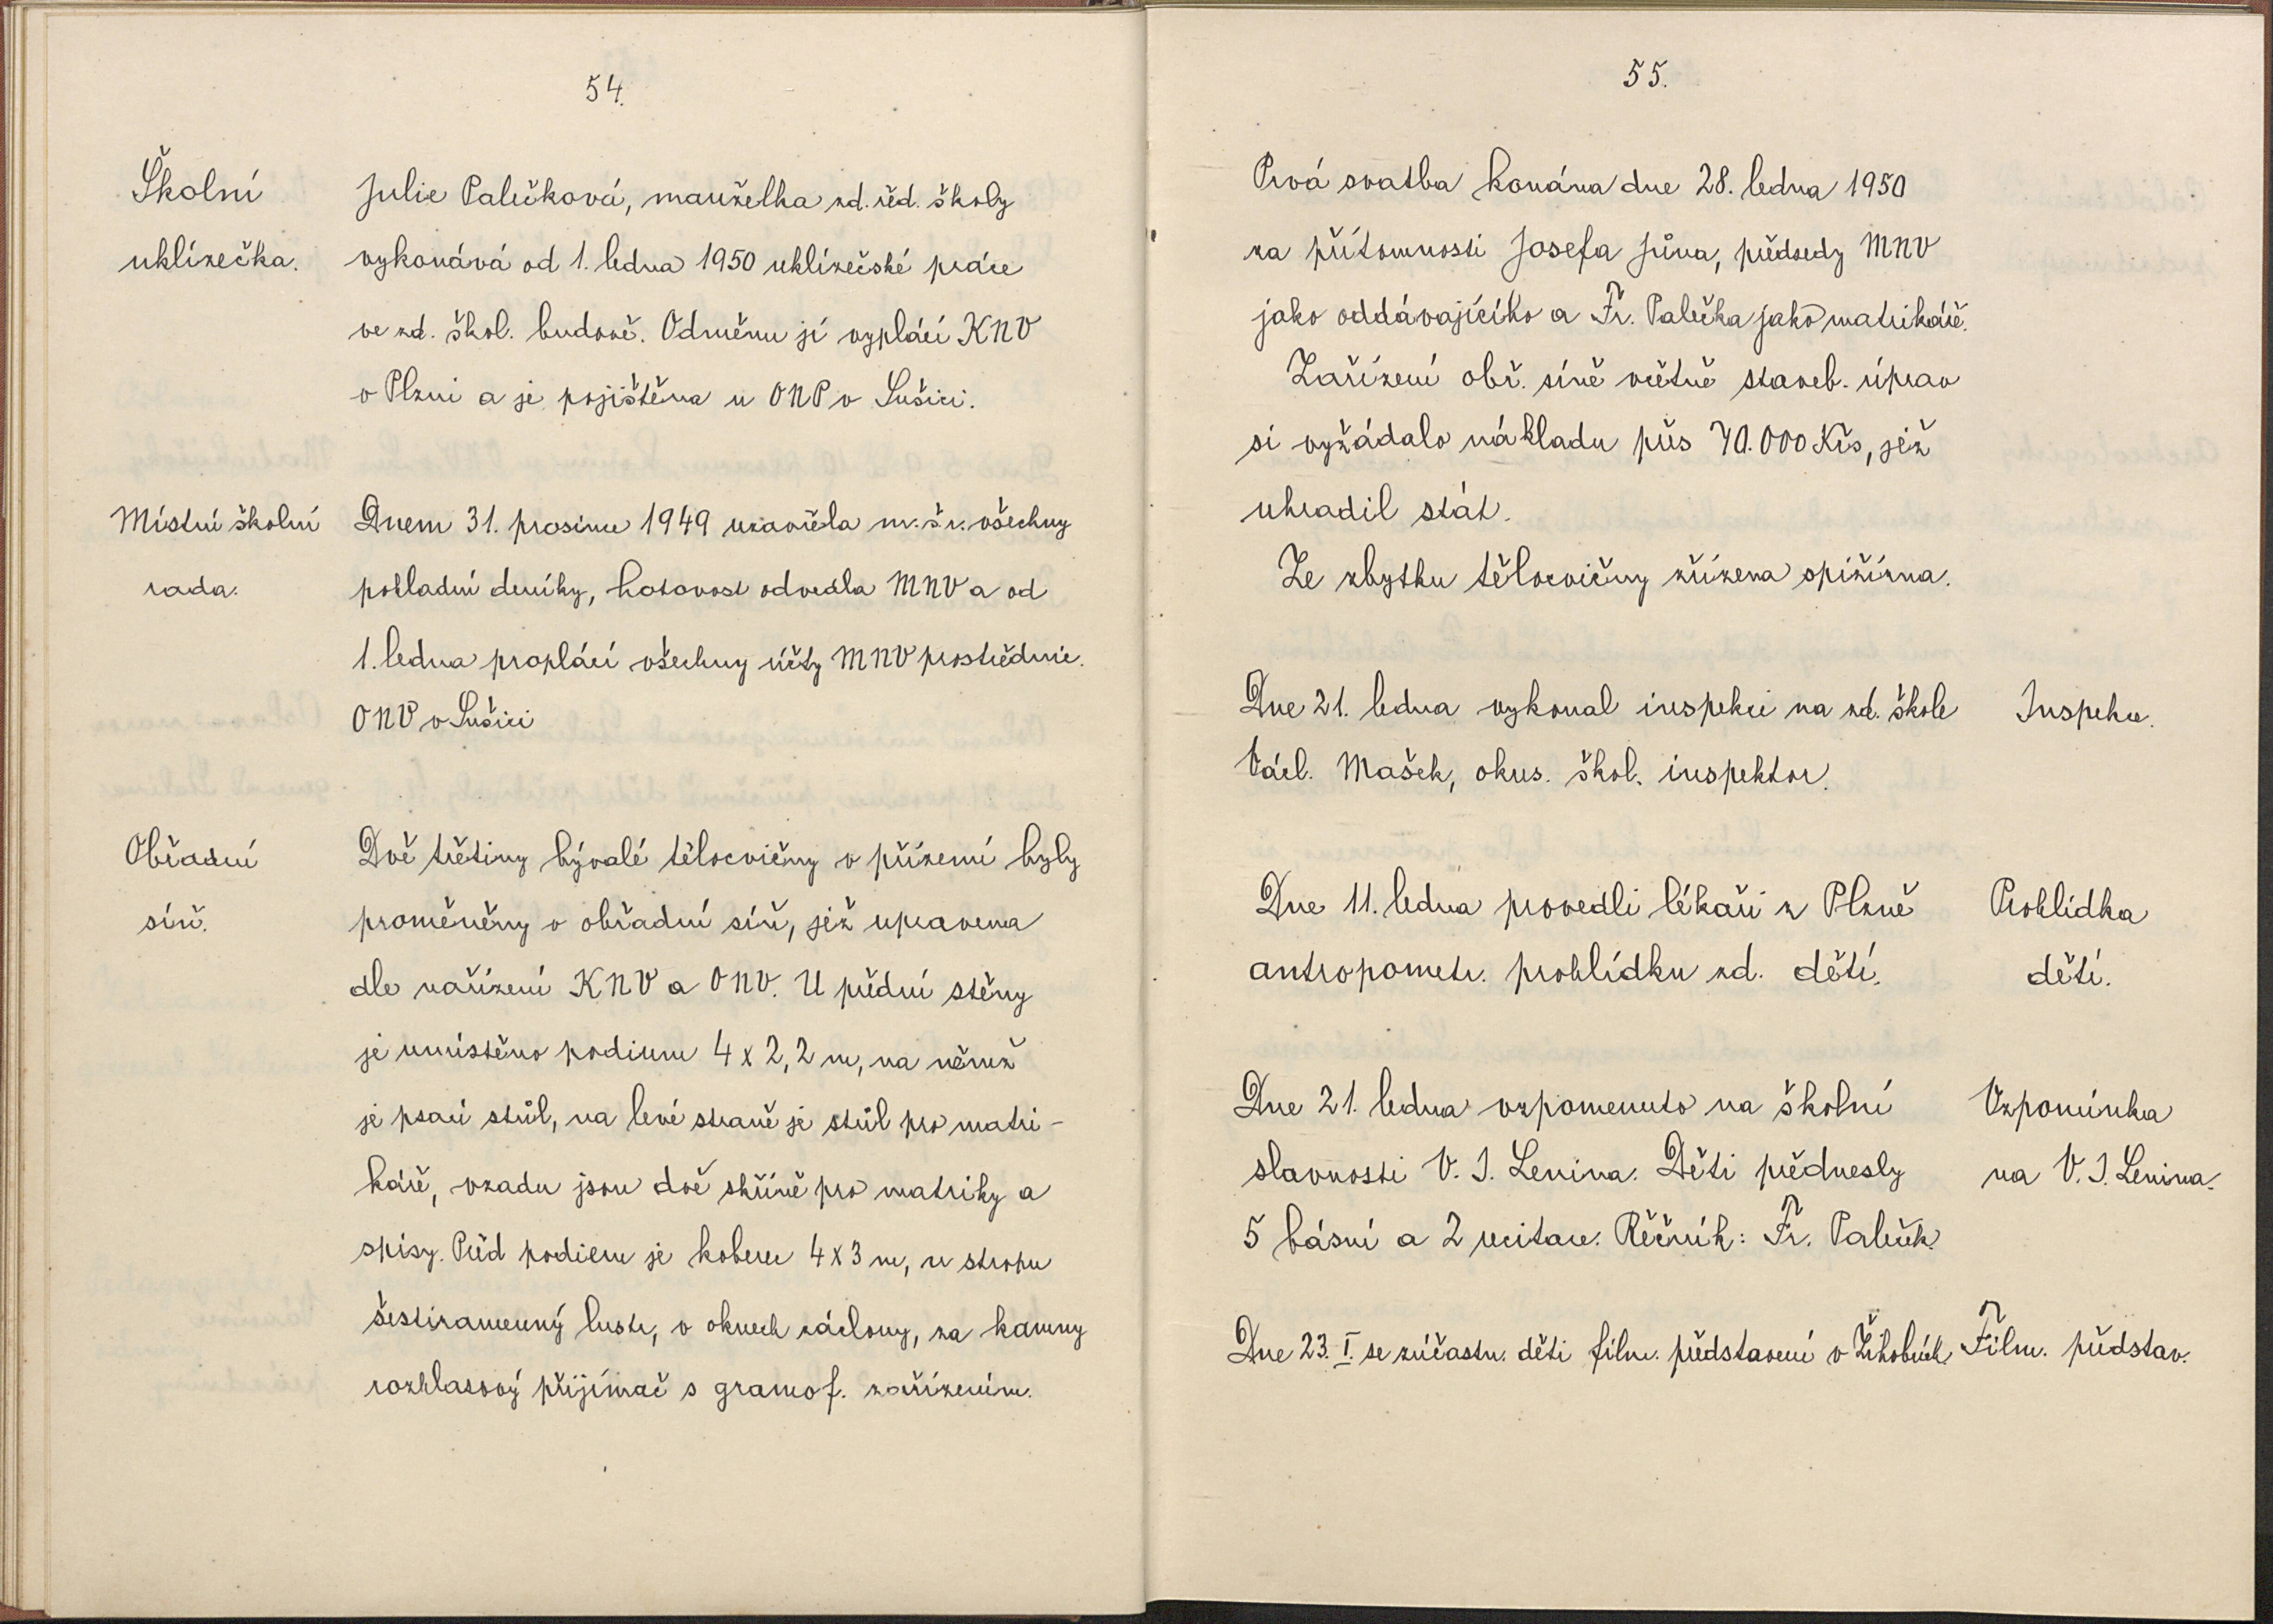 54.
Školní
uklízečka.
Julie Palečková, manželka zd. řed. školy
vykonává od 1. ledna 1950 uklízečské práce
ve zd. škol. budově. Odměnu jí vyplácí KNV
v Plzni a je pojištěna u ONP v Sušici.
Místní školní
rada.
Dnem 31. prosince 1949 uzavřela m. š. r. všechny
pokladní deníky, hotovost odvedla MNV a od
1. ledna proplácí všechny účty MNV prostřednic.
ONV v Sušici
Obřadní
síň.
Dvě třetiny bývalé tělocvičny v přízemí byly
proměněny v obřadní síň, jež upravena
dle nařízení KNV a ONV. U přední stěny
je umístěno podium 4 x 2,2 m, na němž
je psací stůl, na levé straně je stůl pro matri-
káře, vzadu jsou dvě skříně pro matriky a
spisy. Před podiem je koberec 4 x 3 m, u stropu
šestiramenný lustr, v oknech záclony, za kamny
rozhlasový přijímač s gramof. zařízením.
55.
Prvá svatba konána dne 28. ledna 1950
za přítomnosti Josefa Jůna, předsedy MNV
jako oddávajícího a Fr. Palečka jako matrikáře.
Zařízení obř. síně včetně staveb. úprav
si vyžádalo nákladu přes 70.000 Kčs, jež
uhradil stát.
Ze zbytku tělocvičny zřízena spižírna.
Dne 21. ledna vykonal inspekci na zd. škole
Václ. Mašek, okres. škol. inspektor.
Inspekce.
Dne 11. ledna provedli lékaři z Plzně
antropometr. prohlídku zd. dětí.
Prohlídka
dětí.
Dne 21. ledna vzpomenuto na školní
slavnosti V. I. Lenina. Děti přednesly
5 básní a 2 recitace. Řečník: Fr. Paleček.
Vzpomínka
na V. I. Lenina.
Dne 23. I. se zúčastn. děti film. představení v
Film. představ.